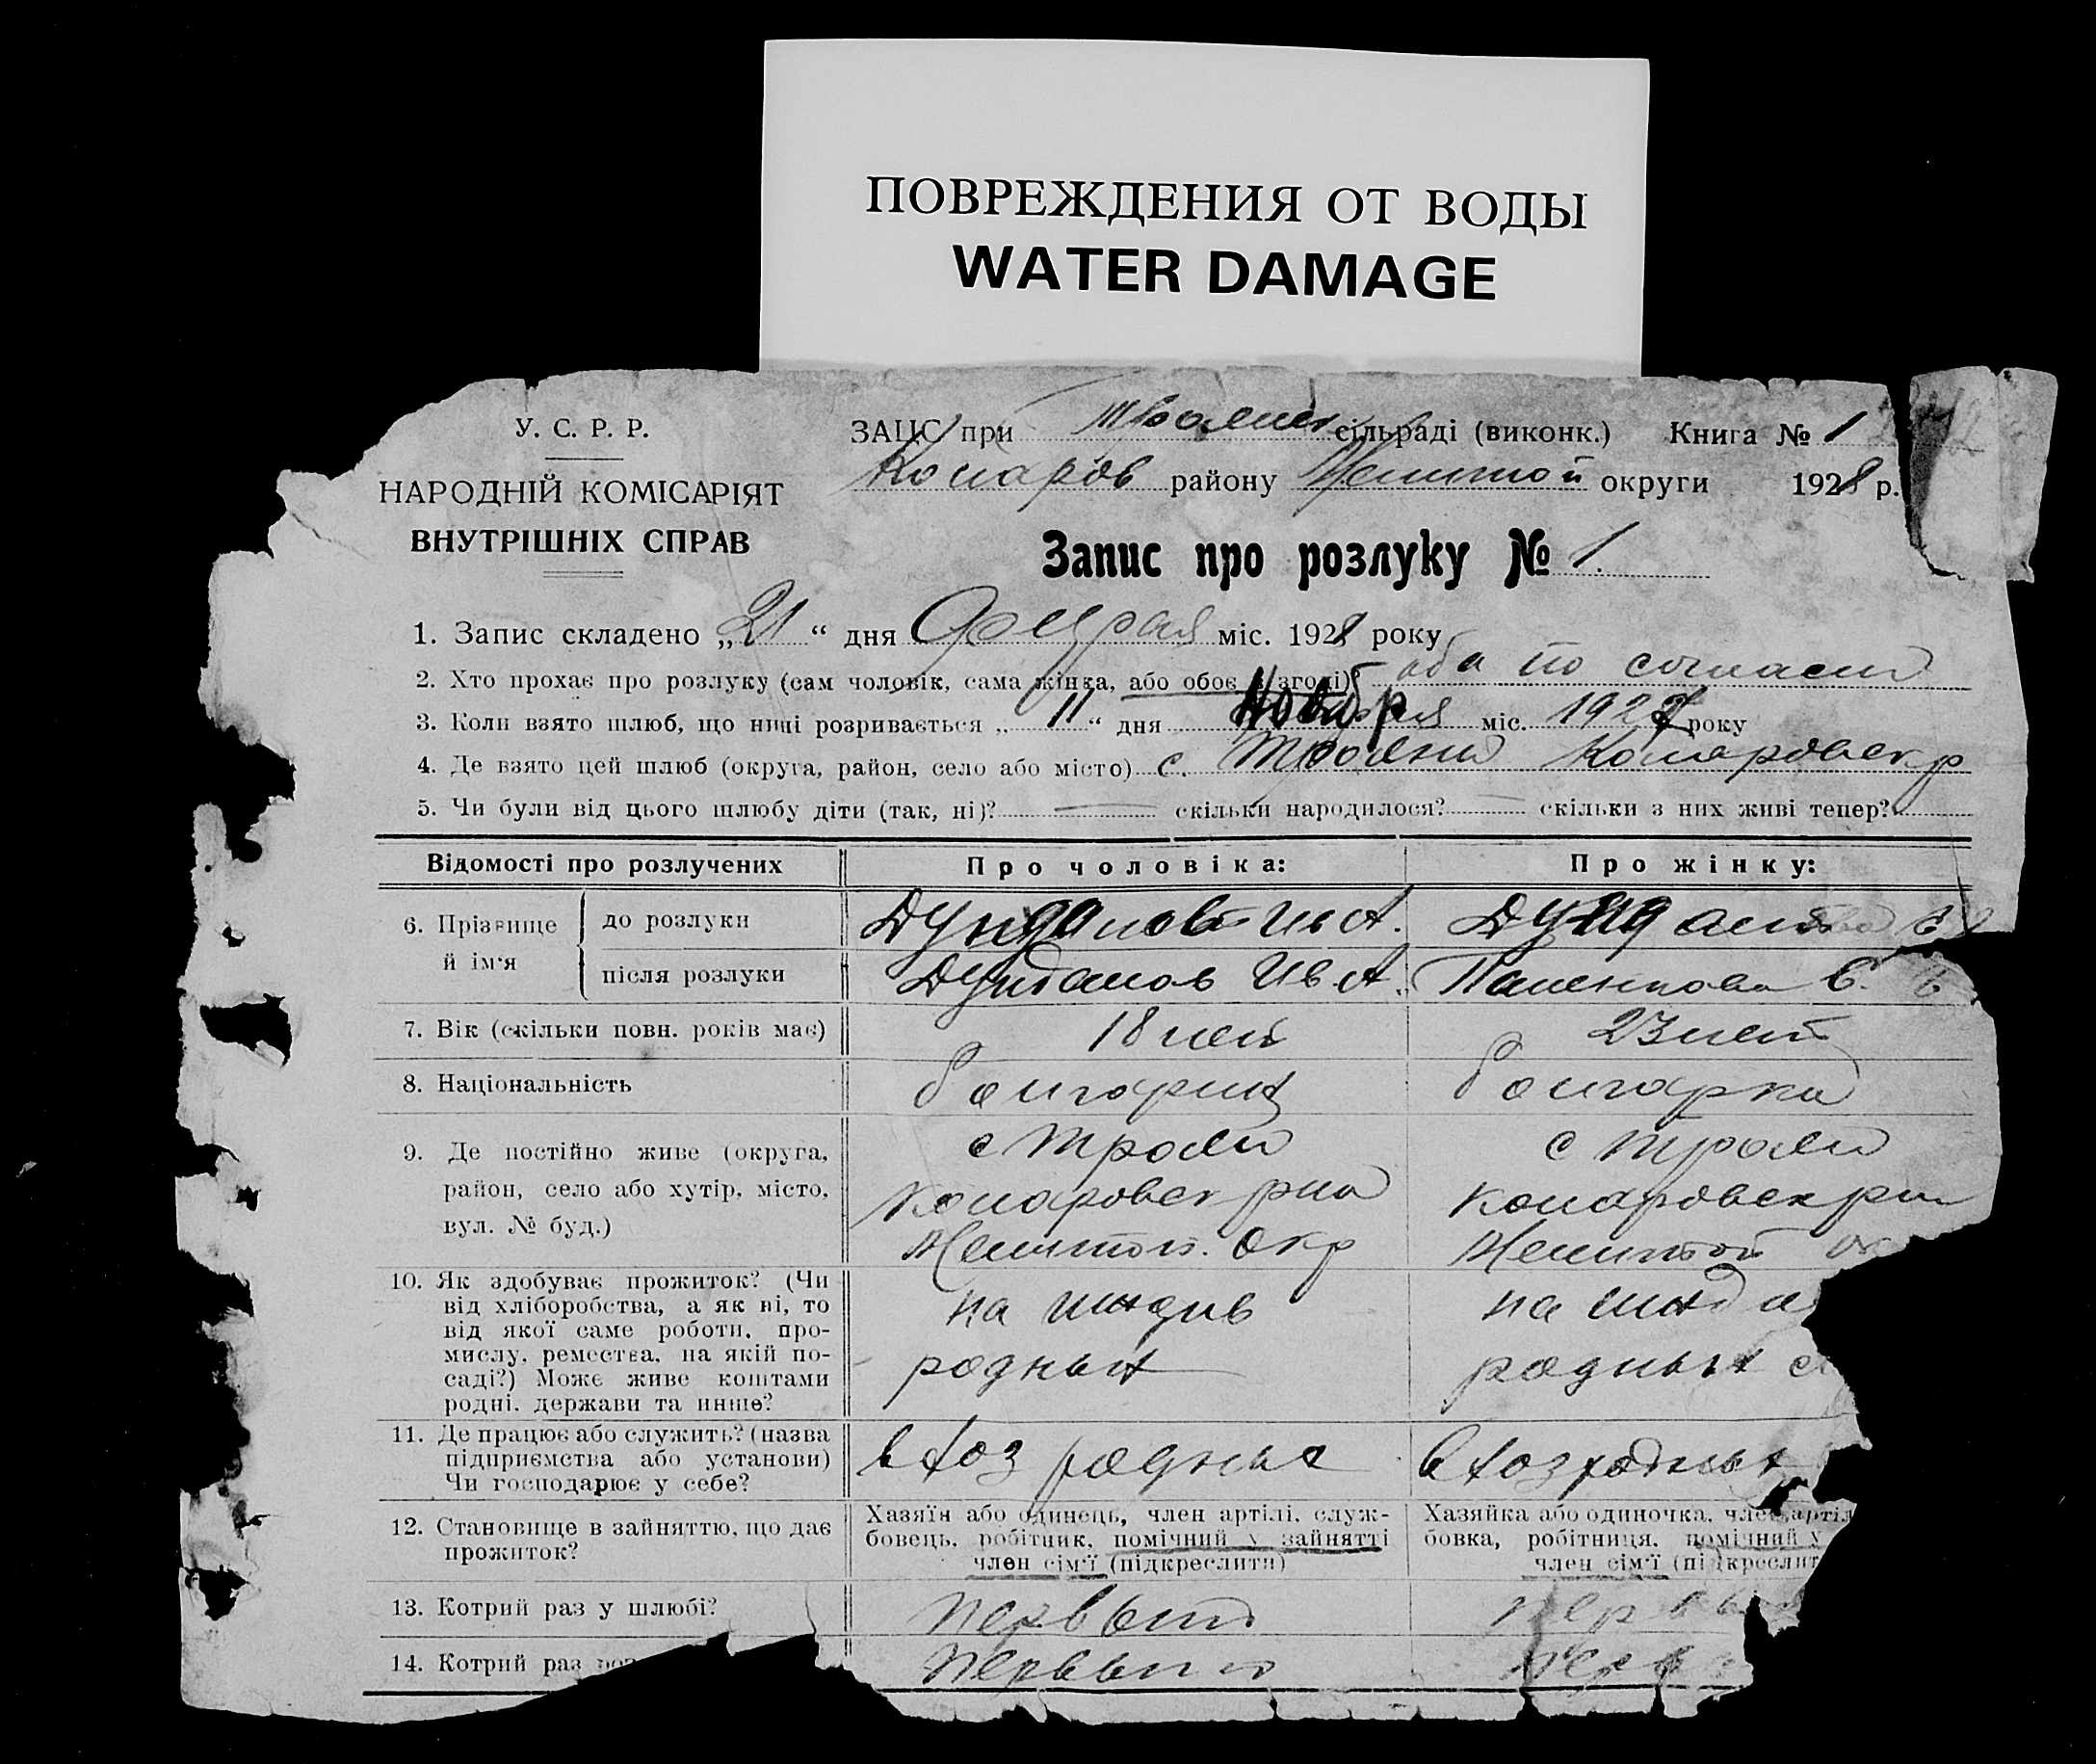 ПОВРЕЖДЕНИЯ ОТ ВОДЫ
WATER DAMAGE
У. С. Р. Р.
НАРОДНІЙ КОМІСАРІЯТ
ВНУТРІШНІХ СПРАВ
ЗАЦС при Троянск сільраді (виконк.) Книга № 1
Коларов району округи 1928 р.
Запис про розлуку № 1.
1. Запис складено „21“ дня міс. 1928 року
2. Хто прохає про розлуку (сам чоловік, сама жінка, або обоє в згоді) оба по согласи
3. Коли взято шлюб, що нині розривається „11“ дня Новобр міс. 1927 року
4. Де взято цей шлюб (округа, район, село або місто) с. Трояни Коларовск р
5. Чи були від цього шлюбу діти (так, ні)? скільки народилося? скільки з них живі тепер?
Відомості про розлучених Про чоловіка: Про жінку:
6. Прізвище й ім'я
до розлуки Дунданов Ив А.
після розлуки Дунданов Ив. А.
7. Вік (скільки повн. років має) 18 лет 23 лет
8. Національність болгарин болгарка
9. Де постійно живе (округа, с Трояни с Трояни
район, село або хутір, місто, Коларовск рна Коларовск р
вул. № буд.) Мелитоп. окр
10. Як здобуває прожиток? (Чи
від хліборобства, а як ні, то на на
від якої саме роботи, про-
мислу, ремества, на якій по- родных родных
саді?) Може живе коштами
родні, держави та инше?
11. Де працює або служить? (назва
підприємства або установи) в хоз родных в хоз родных
Чи господарює у себе?
12. Становище в зайняттю, що дає
прожиток?
Хазяїн або одинець, член артілі, служ-
бовець, робітник, помічний у зайнятті
член сім'ї (підкреслити)
Хазяйка або одиночка, член артіл
бовка, робітниця, помічний у
член сім'ї (підкреслит
13. Котрий раз у шлюбі? первый перв
14. Котрий раз роз первый перв